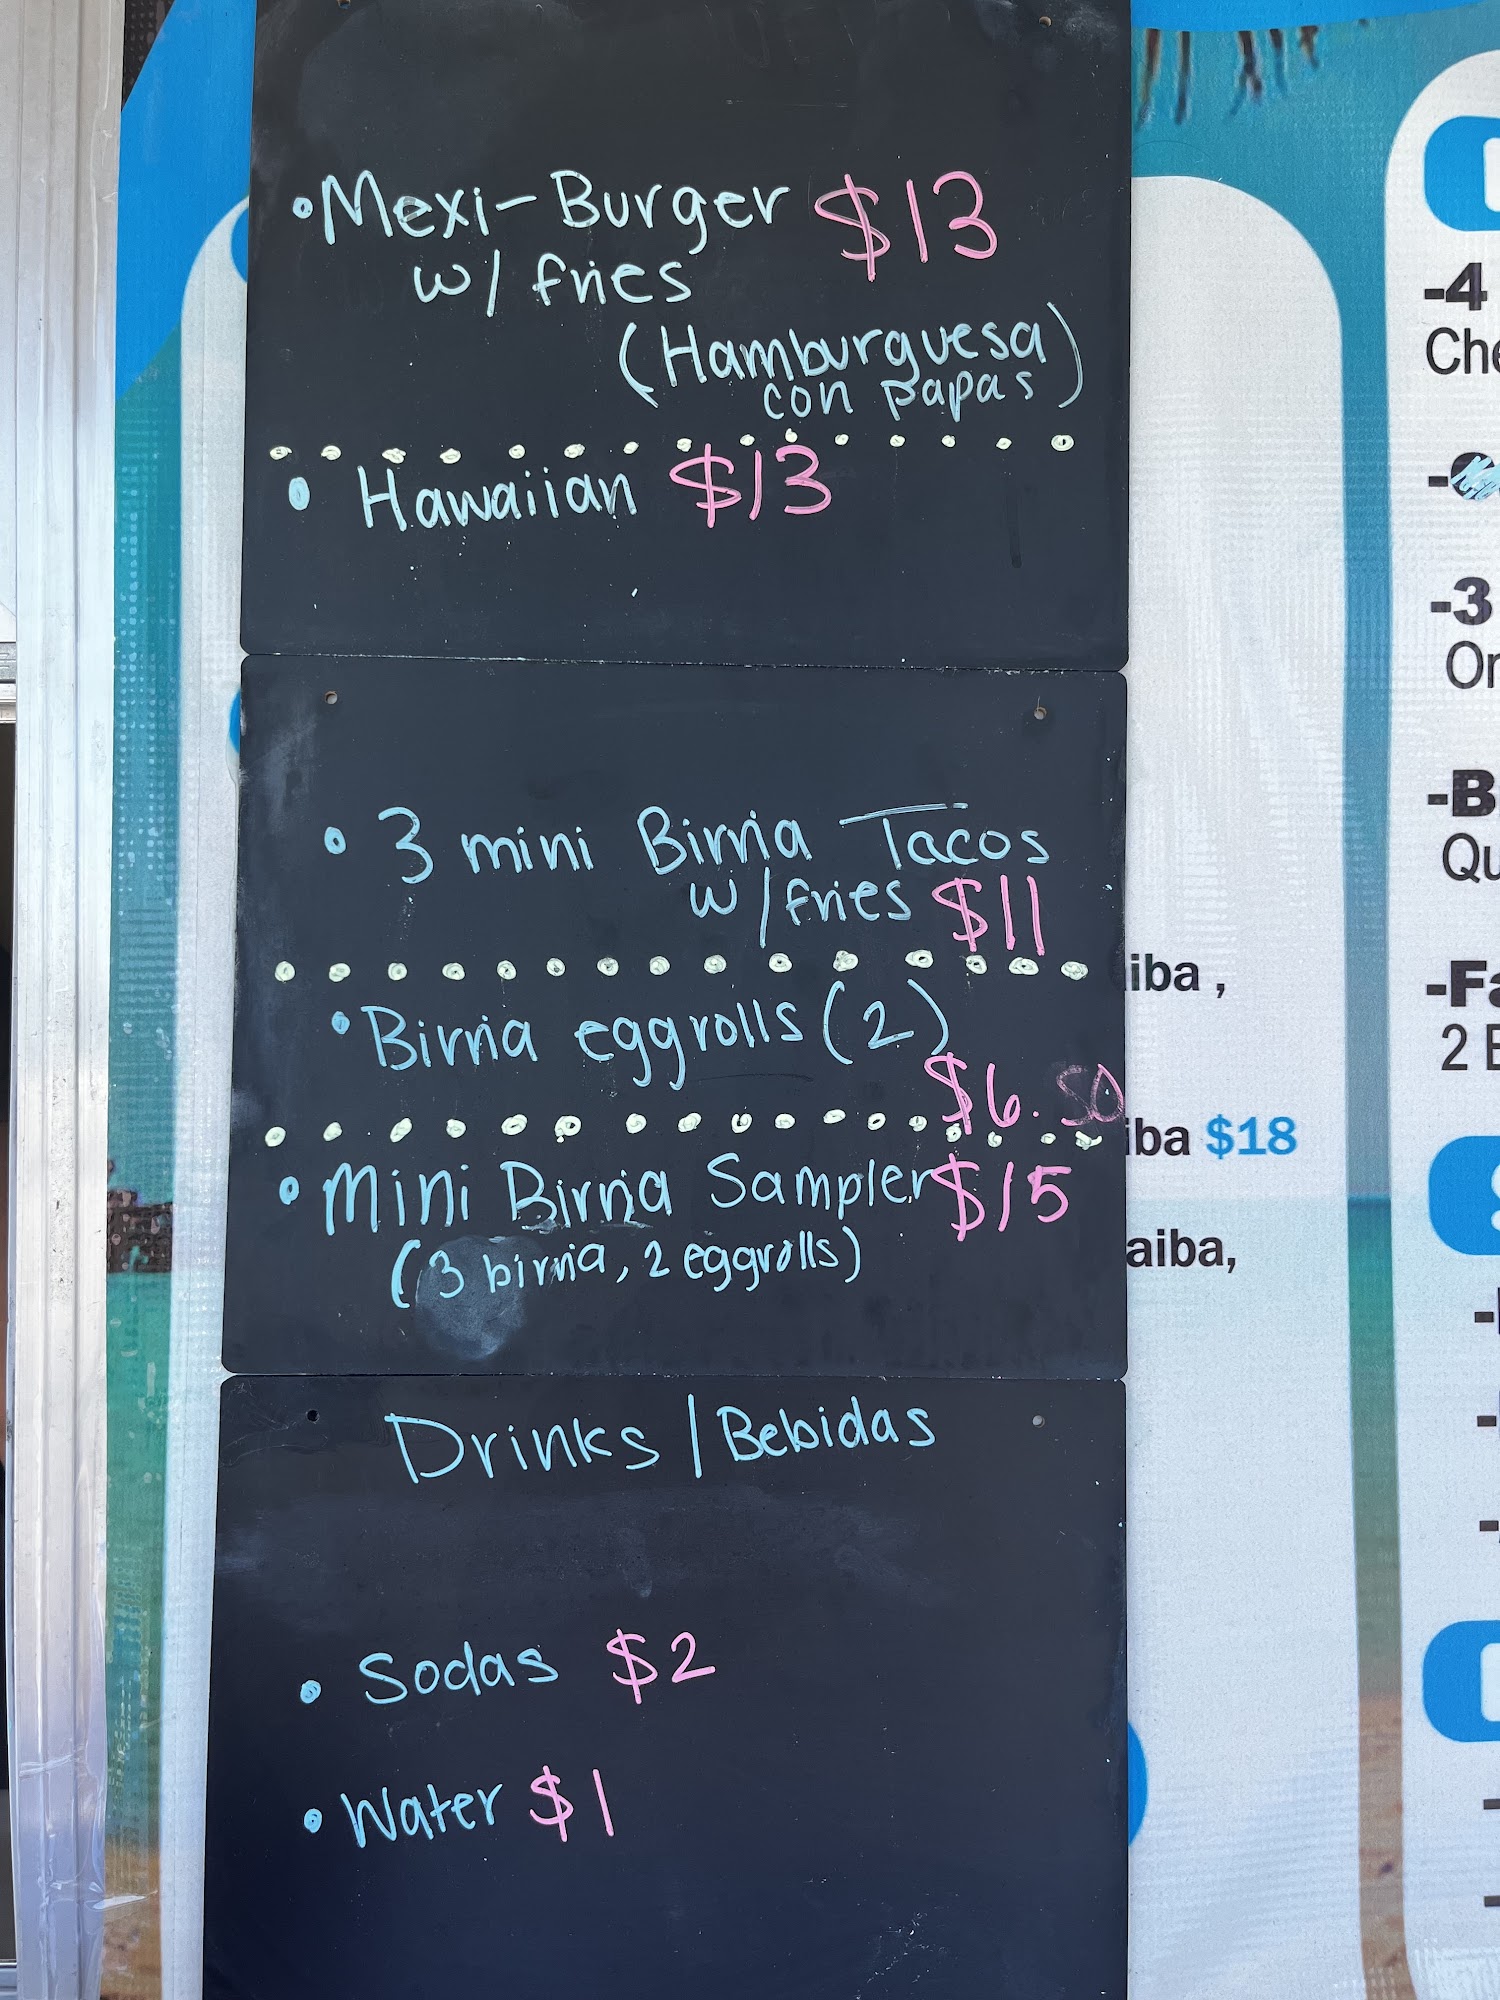 • Mexi-Burger $13
w/ fries
(Hamburguesa
con papas)
• Hawaiian $13
• 3 mini Birria Tacos
w/ fries $11
• Birria eggrolls (2)
$6.50
• Mini Birria Sampler $15
(3 birria, 2 eggrolls)
Drinks / Bebidas
• Sodas $2
• Water $1
iba ,
iba $18
aiba,
-4
Che
-3
Or
-B
Qu
-Fa
2 E